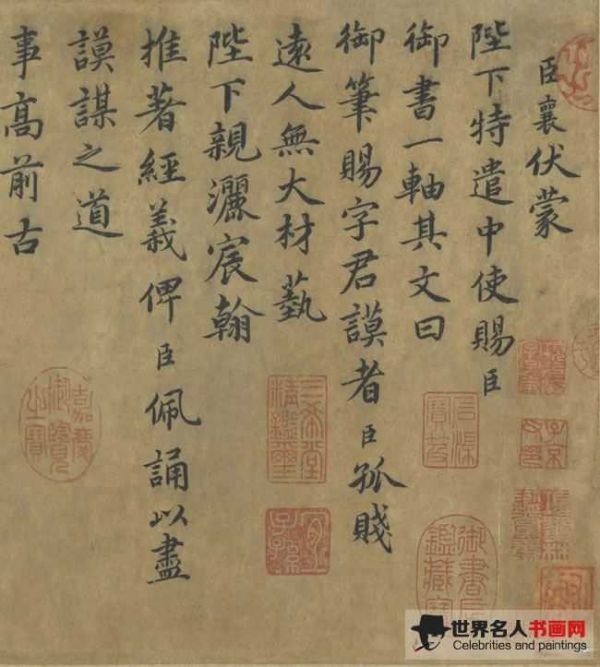 臣襄伏蒙
陛下特遣中使賜臣
御書一軸其文曰
御筆賜字君謨者臣孤賤
遠人無大材藝
陛下親灑宸翰
推著經義俾臣佩誦以盡
謨謀之道
事高前古
三希堂精鑑璽
宜子孫
嘉慶御覽之寶
世界名人书画网
Celebrities and paintings